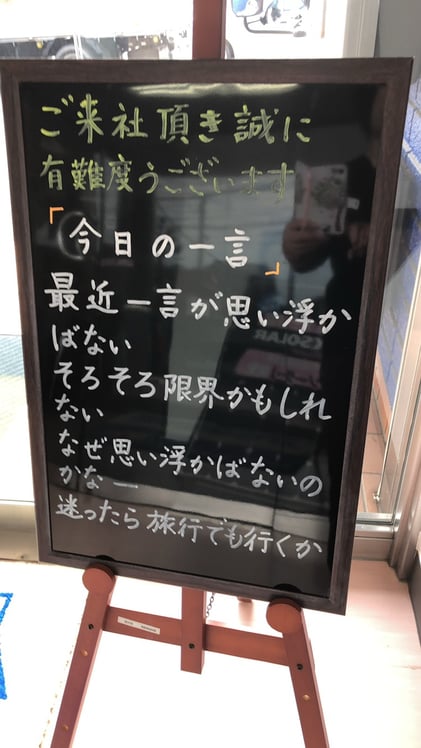 ご来社頂き誠に
有難度うございます
「今日の一言」
最近一言が思い浮か
ばない
そろそろ限界かもしれ
ない
なぜ思い浮かばないの
かなー
迷ったら旅行でも行くか
SOLAR